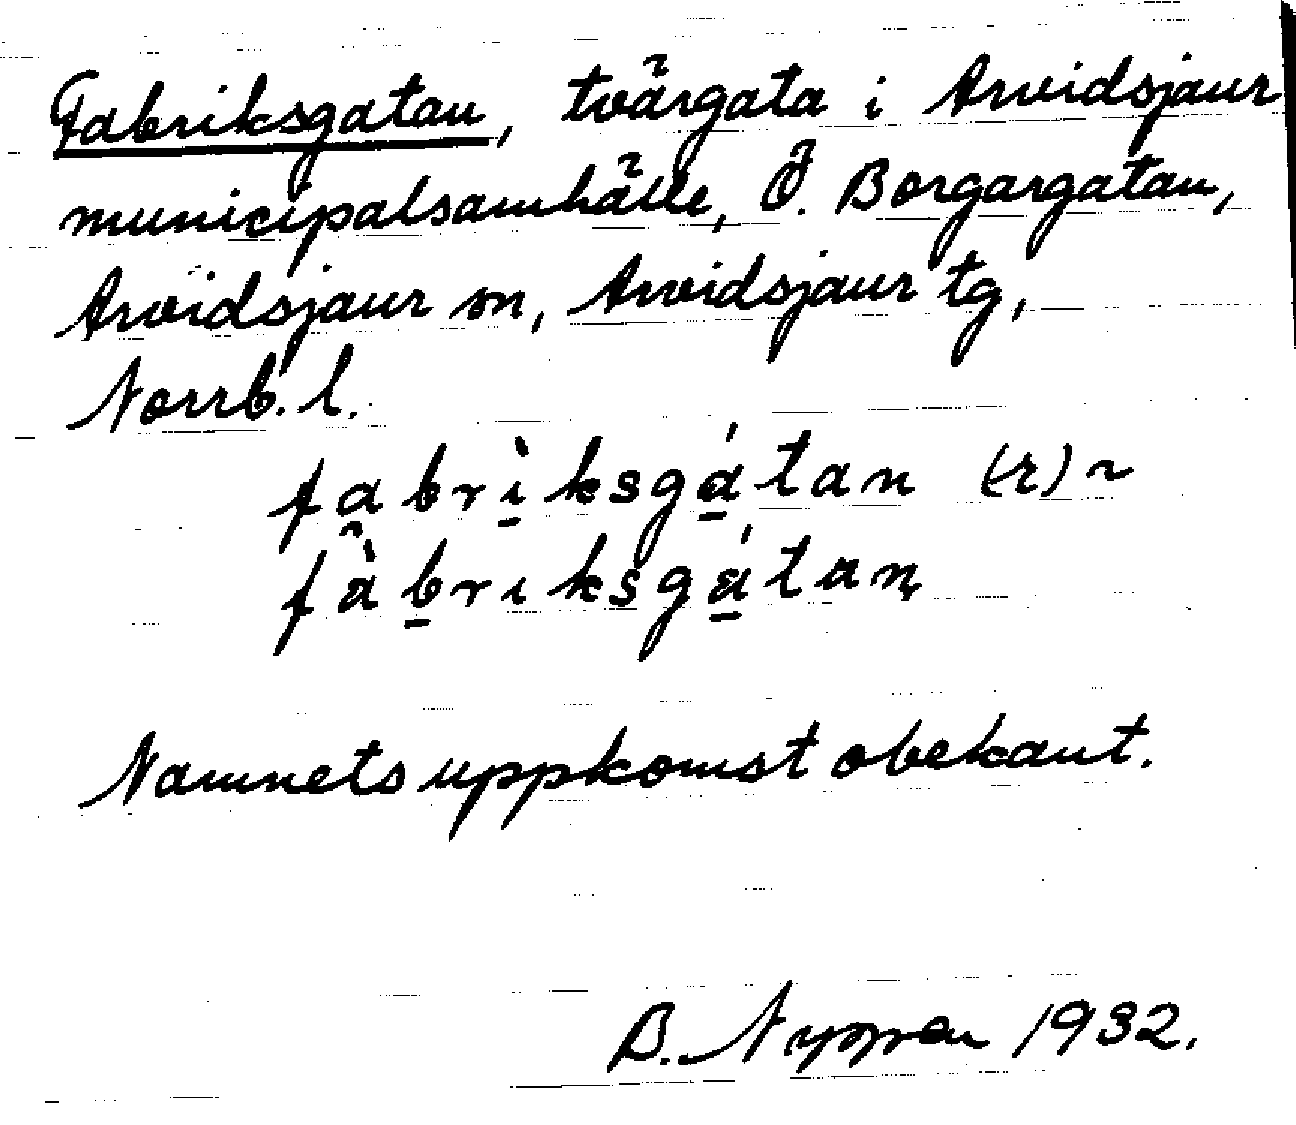 Fabriksgatan, tvärgata i Arvidsjaur
municipalsamhälle, Ö. Borgargatan,
Arvidsjaur sn, Arvidsjaur tg,
Norrb. l.
fabrìksgátan (-r) ~
fàbriksgátan
Namnets uppkomst obekant.
B. 1932.